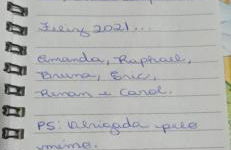 Feliz 2021...
Amanda, Raphael,
Bruna, Eric,
Renan e Carol.
PS: Obrigada pelo
mimo.